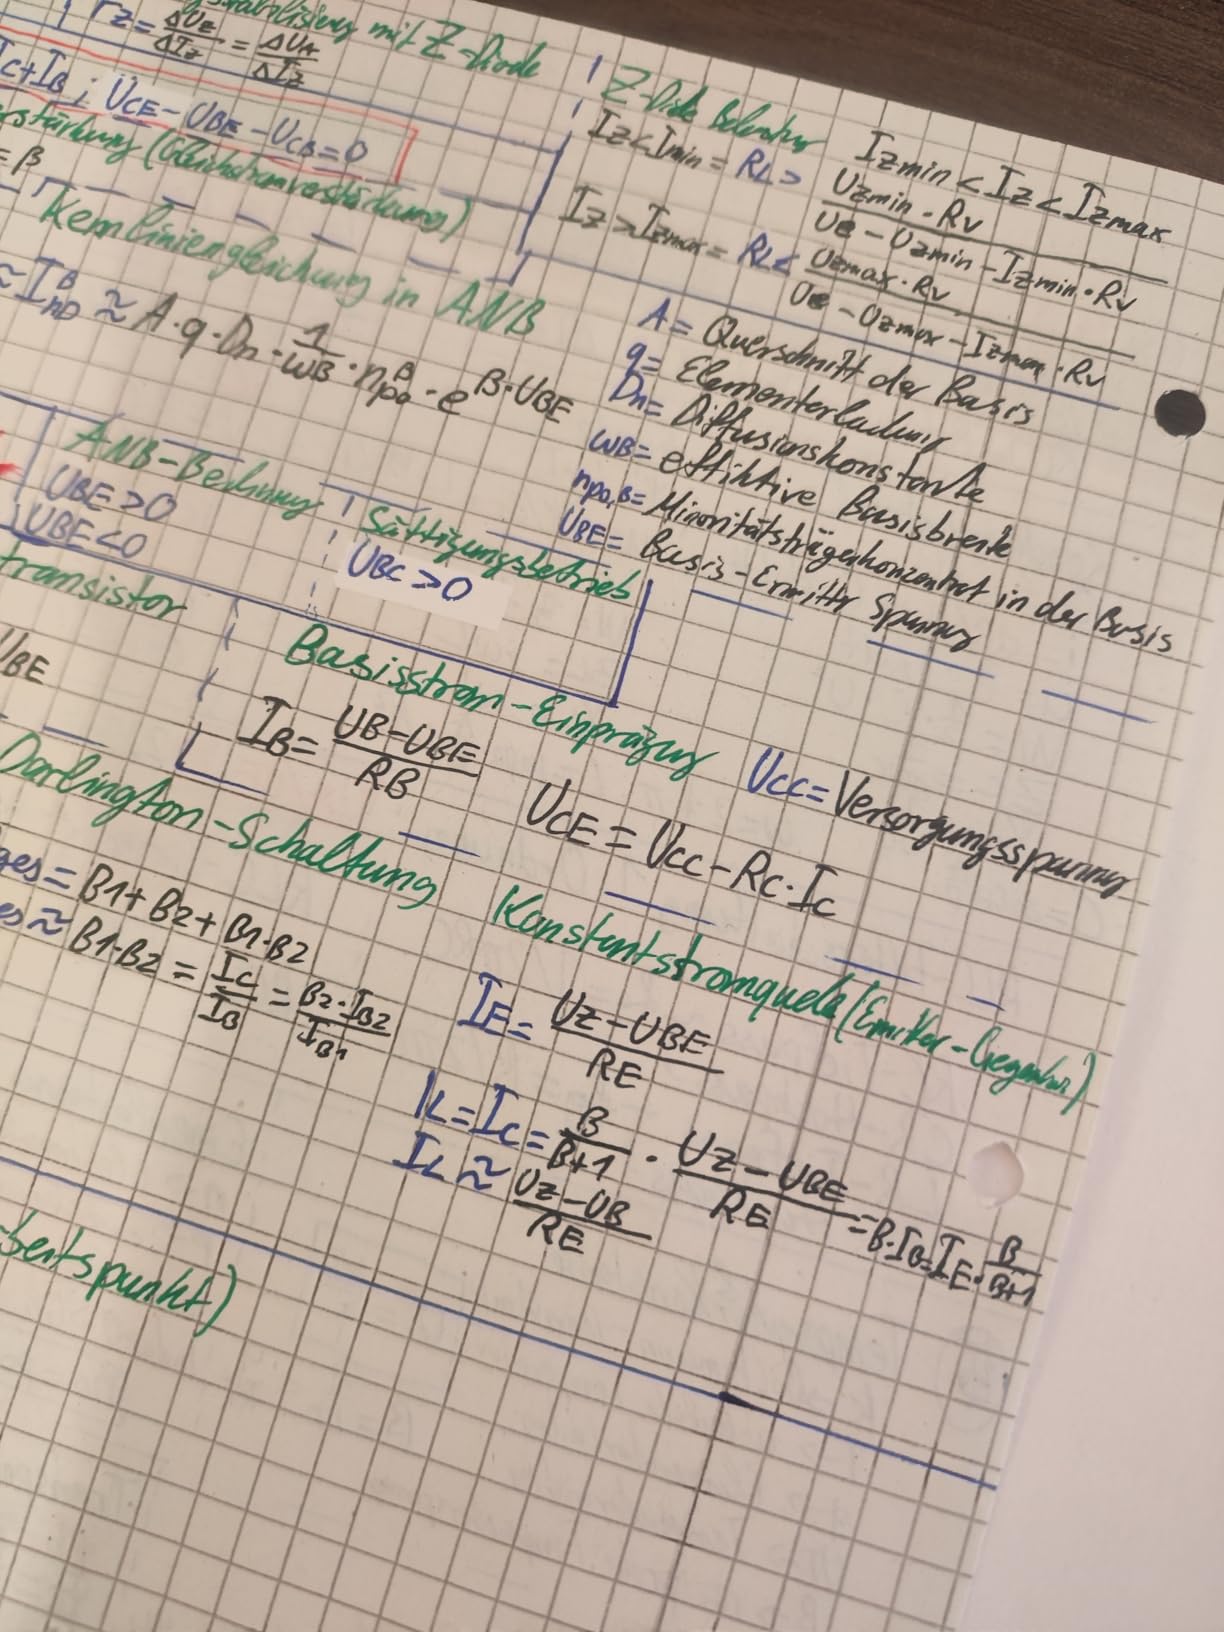 rz = ΔUE/ΔIz = ΔUA/ΔIz
mit Z-Diode
Ic+IB ; UCE - UBE - UCB = 0
(Gleichstromverstärkung)
= β
Kennliniengleichung in ANB
≈ I_n0^B ≈ A·q·Dn · 1/WB · n_p0^B · e^β·UBE
Z-Diode
Iz < Imin = RL > Uzmin · Rv / Ue - Uzmin - Izmin · Rv
Izmin < Iz < Izmax
Iz > Izmax = RL < Uzmax · Rv / Ue - Uzmax - Izmax · Rv
A = Querschnitt der Basis
q = Elementarladung
Dn = Diffusionskonstante
WB = effektive Basisbreite
npo,B = Minoritätsträgerkonzentrat in der Basis
UBE = Basis-Emitter Spannung
ANB-Bedinung
UBE > 0
UBE < 0
Sättigungsbetrieb
UBC > 0
transistor
UBE
Basisstrom-Einprägung
IB = UB - UBE / RB
UCE = Vcc - Rc · Ic
Vcc = Versorgungsspannung
Darlington-Schaltung
ges = B1 + B2 + B1·B2
es ≈ B1·B2 = Ic/IB = B2·IB2/IB1
Konstantstromquele (Emitter-Gegenkor)
IE = Uz - UBE / RE
IL = Ic = B/B+1 · Uz - UBE / RE = B·IB = IE · B/B+1
IL ≈ Uz - UB / RE
beitspunkt)